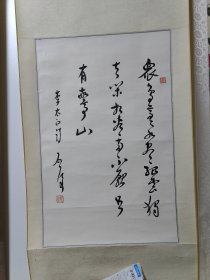 眾鳥高飛盡孤雲獨
去閑相看兩不厭只
有敬亭山
李太白詩